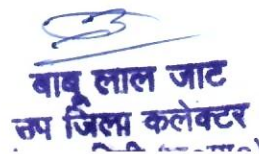 बाबू लाल जाट
उप जिला कलेक्टर